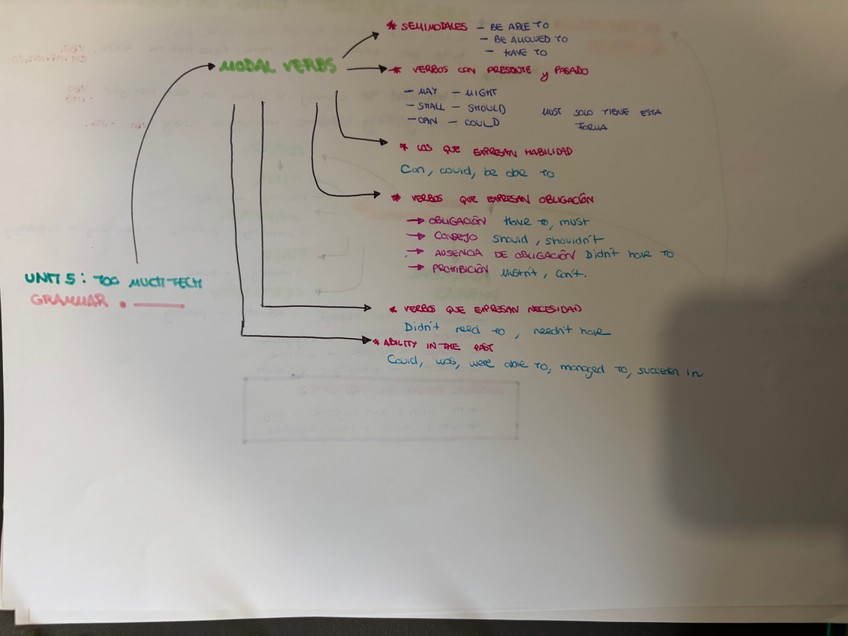 * SEMIMODALES - BE ABLE TO
- BE ALLOWED TO
- HAVE TO
MODAL VERBS
* VERBOS CON PRESENTE y PASADO
- MAY - MIGHT
- SHALL - SHOULD
- CAN - COULD
MUST SOLO TIENE ESTA
FORMA
* LOS QUE EXPRESAN HABILIDAD
Can, could, be able to
* VERBOS QUE EXPRESAN OBLIGACIÓN
→ OBLIGACIÓN Have to, must
→ CONSEJO Should, shouldn't
→ AUSENCIA DE OBLIGACIÓN Didn't have to
→ PROHIBICIÓN Mustn't, Can't.
UNIT 5: TOO MUCH TECH
GRAMMAR.
* VERBOS QUE EXPRESAN NECESIDAD
Didn't need to, needn't have
* ABILITY IN THE PAST
Could, was, were able to, managed to, in